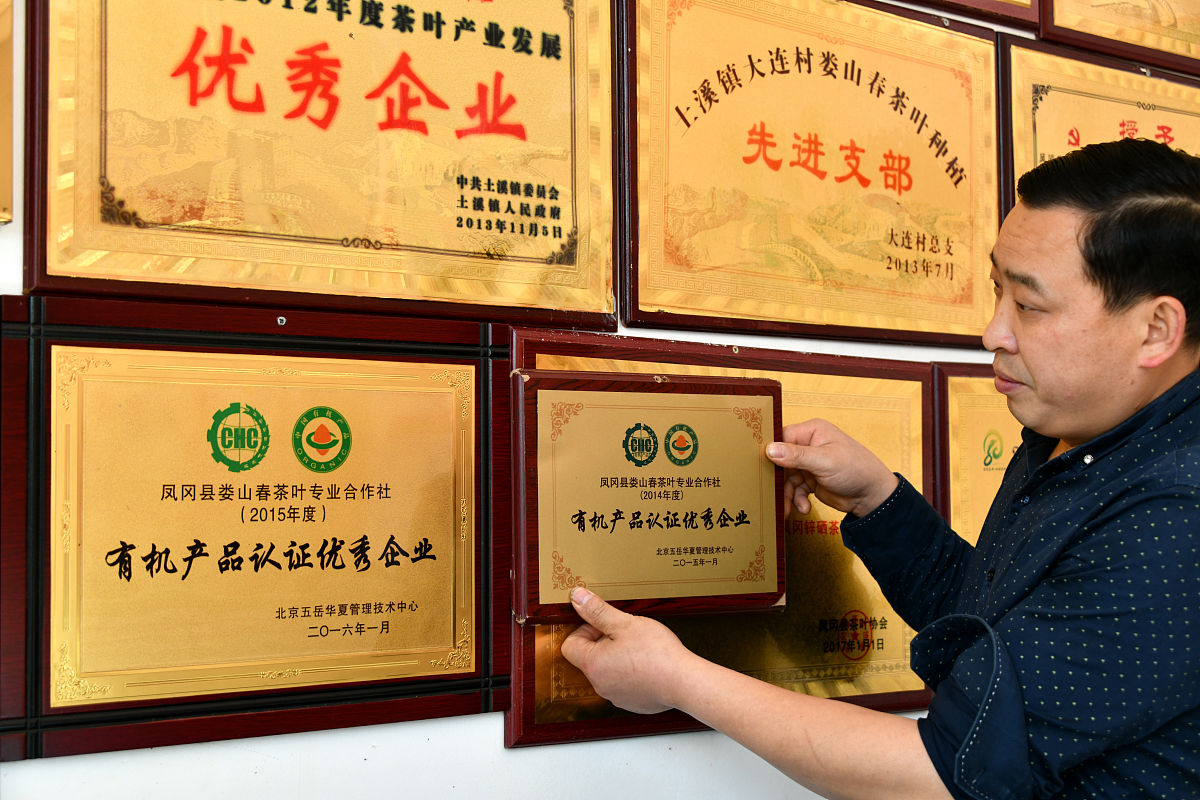 2012年度茶叶产业发展
优秀企业
中共土溪镇委员会
土溪镇人民政府
2013年11月5日
土溪镇大连村娄山春茶叶种植
先进支部
大连村总支
2013年7月
授予
CHC
中国有机产品
ORGANIC
凤冈县娄山春茶叶专业合作社
(2015年度)
有机产品认证优秀企业
北京五岳华夏管理技术中心
二〇一六年一月
CHC
凤冈县娄山春茶叶专业合作社
(2014年度)
有机产品认证优秀企业
北京五岳华夏管理技术中心
二〇一五年一月
凤冈锌硒茶
凤冈县茶叶协会
2017年1月1日